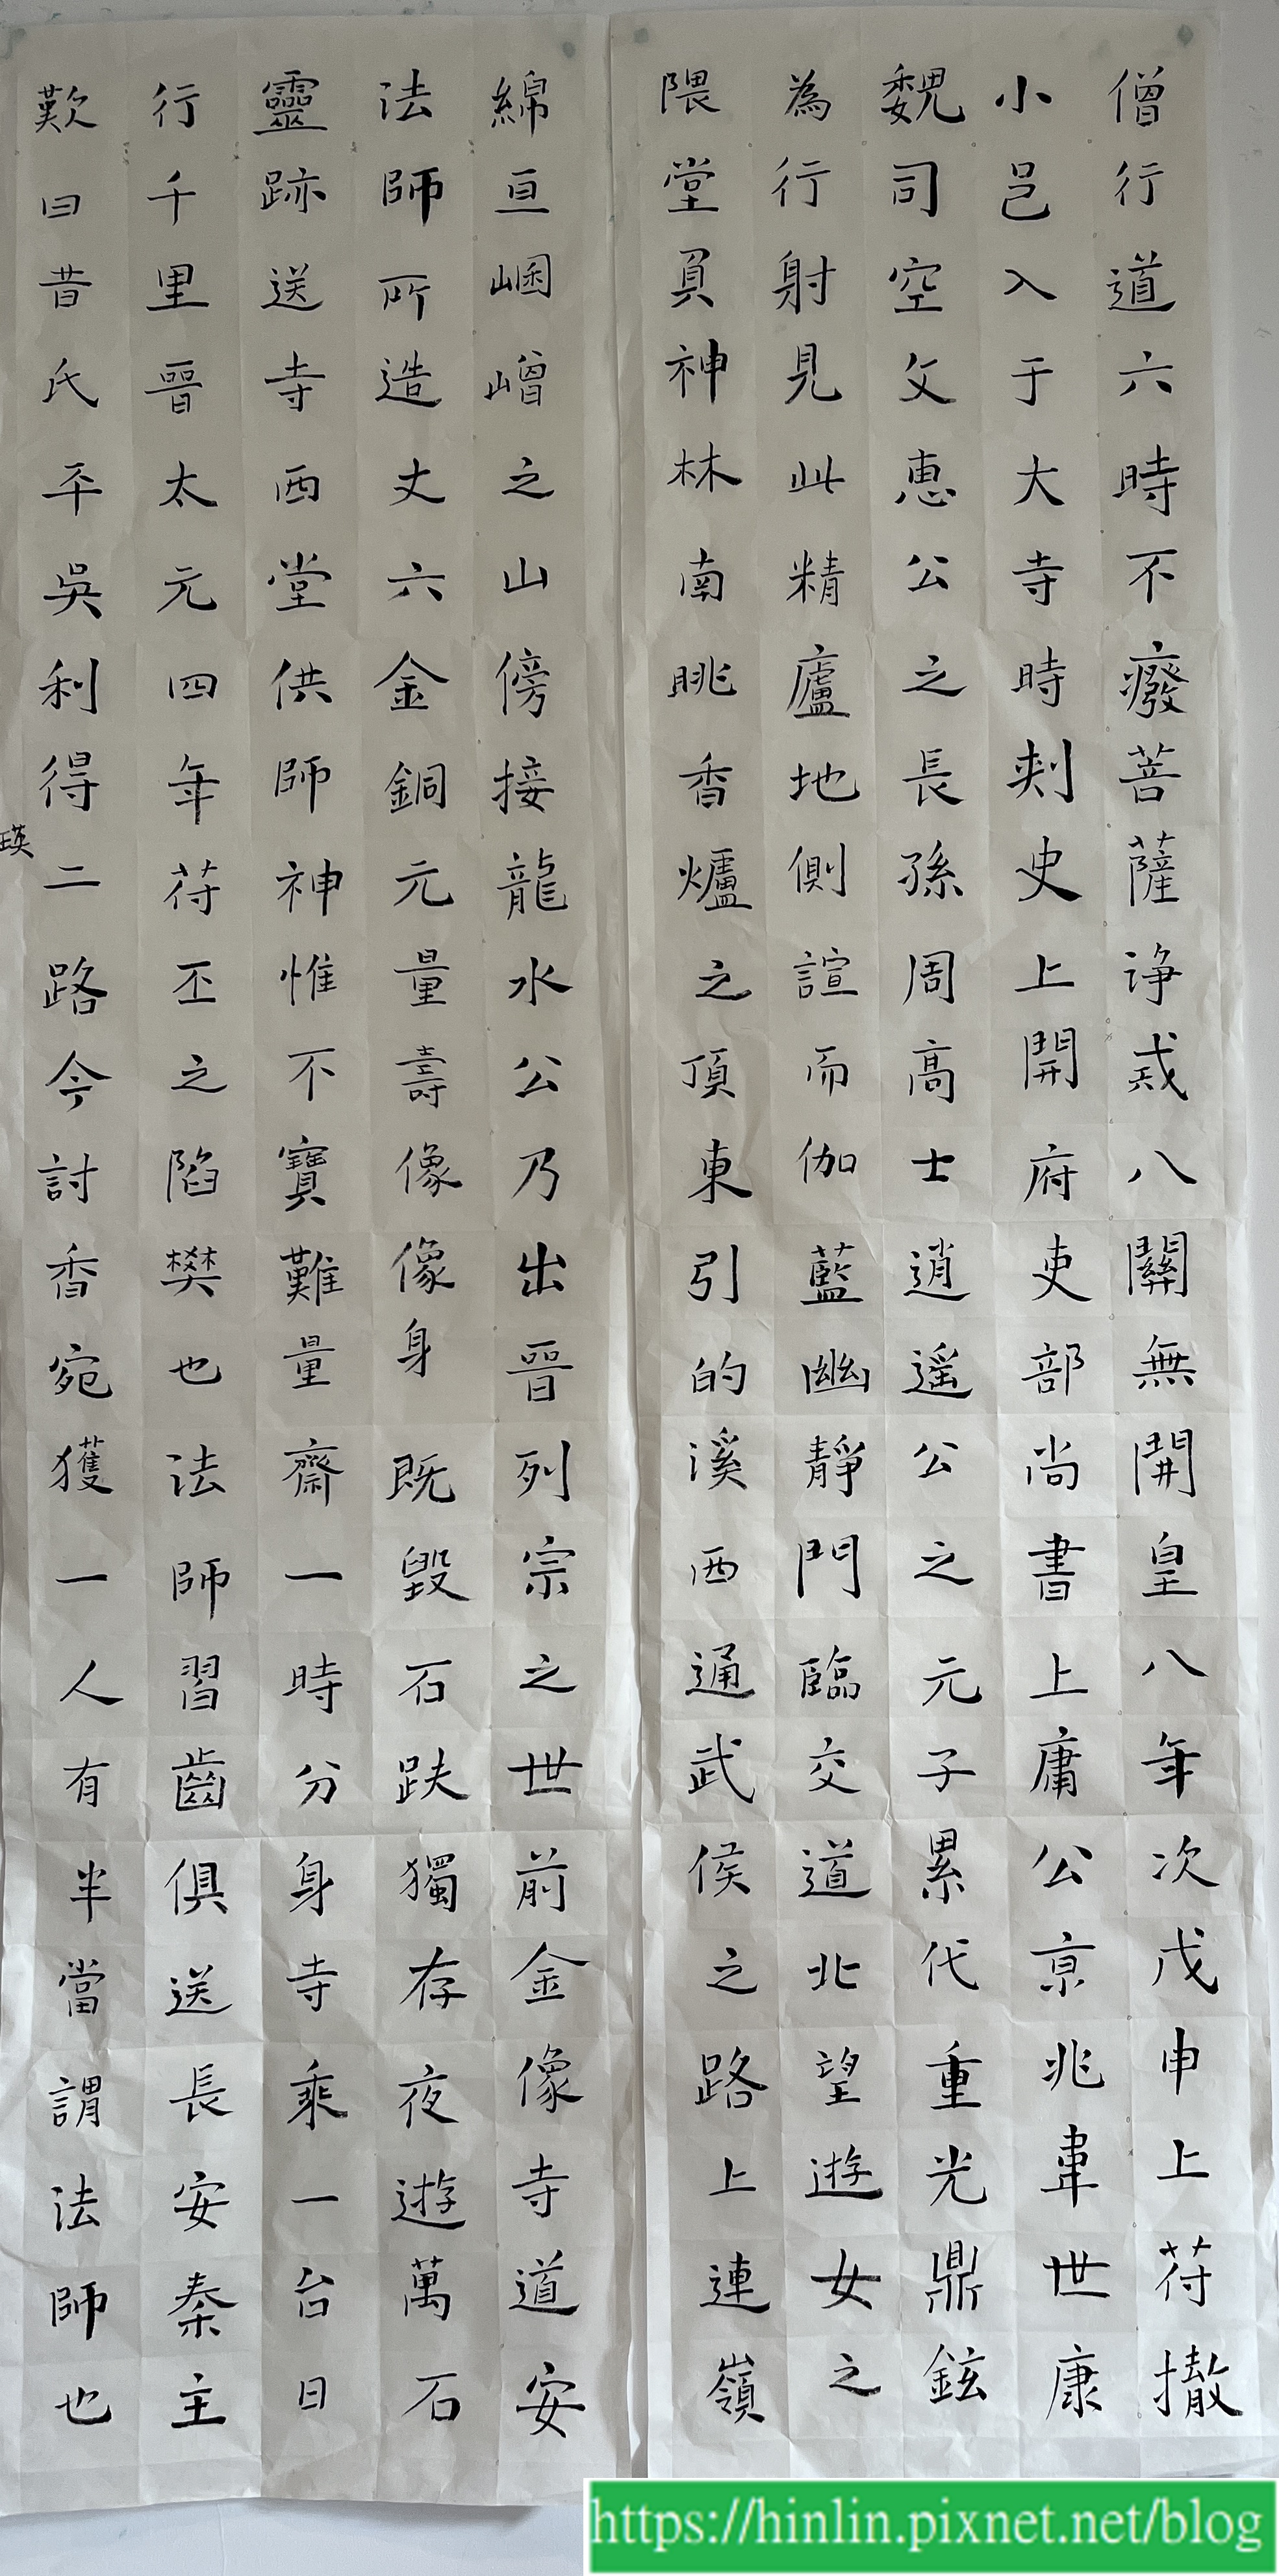 僧行道六時不癈菩薩諍戒八關無開皇八年次戊申上苻撤
小邑入于大寺時刾史上開府吏部尚書上庸公京兆韋世康
魏司空文惠公之長孫周高士逍遥公之元子累代重光鼎鉉
為行射見此精廬地側諠而伽藍幽靜門臨交道北望遊女之
隈堂負神林南眺香爐之頂東引的溪西通武侯之路上連嶺
綿亘崓嶒之山傍接龍水公乃出晉列宗之世前金像寺道安
法師所造丈六金銅元量壽像像身既毀石趺獨存夜遊萬石
靈跡送寺西堂供師神惟不寶難量齋一時分身寺乘一台日
行千里晉太元四年苻丕之陷樊也法師習齒俱送長安秦主
歎曰昔氏平吳利得二路今討香宛獲一人有半當謂法師也
瑛
https://hinlin.pixnet.net/blog